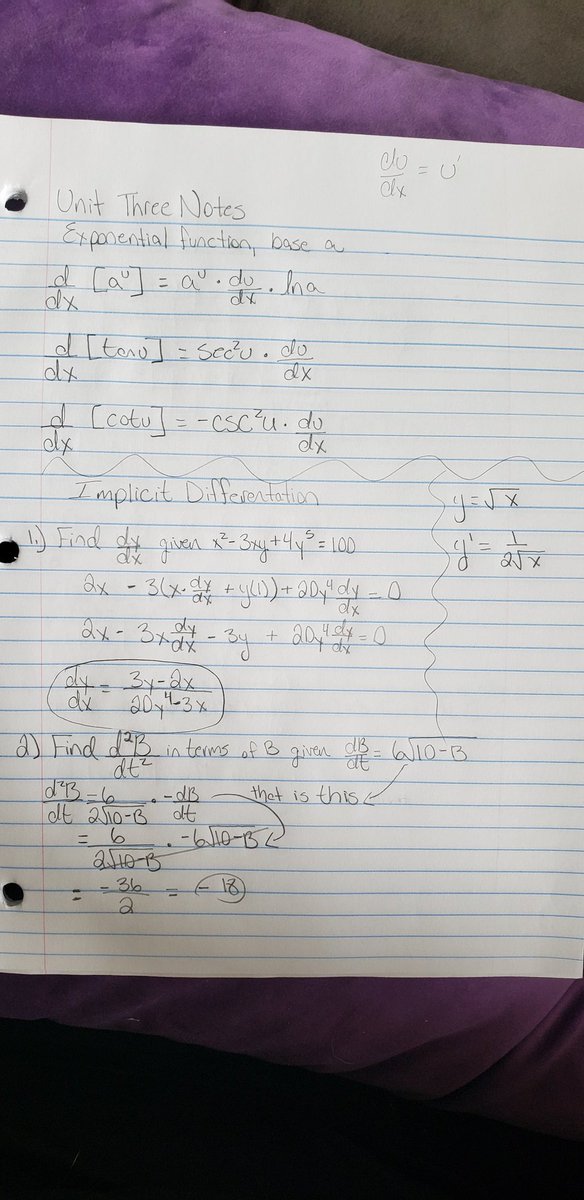 du/dx = u'
Unit Three Notes
Exponential function, base a
d/dx [aᵘ] = aᵘ · du/dx · ln a
d/dx [tanu] = sec²u · du/dx
d/dx [cotu] = -csc²u · du/dx
Implicit Differentation
y = √x
y' = 1/2√x
1.) Find dy/dx given x² - 3xy + 4y⁵ = 100
2x - 3(x · dy/dx + y(1)) + 20y⁴ dy/dx = 0
2x - 3x dy/dx - 3y + 20y⁴ dy/dx = 0
dy/dx = 3y-2x/20y⁴-3x
2) Find d²B/dt² in terms of B given dB/dt = 6√10-B
d²B/dt = 6/2√10-B · -dB/dt that is this
= 6/2√10-B · -6√10-B
= -36/2 = -18